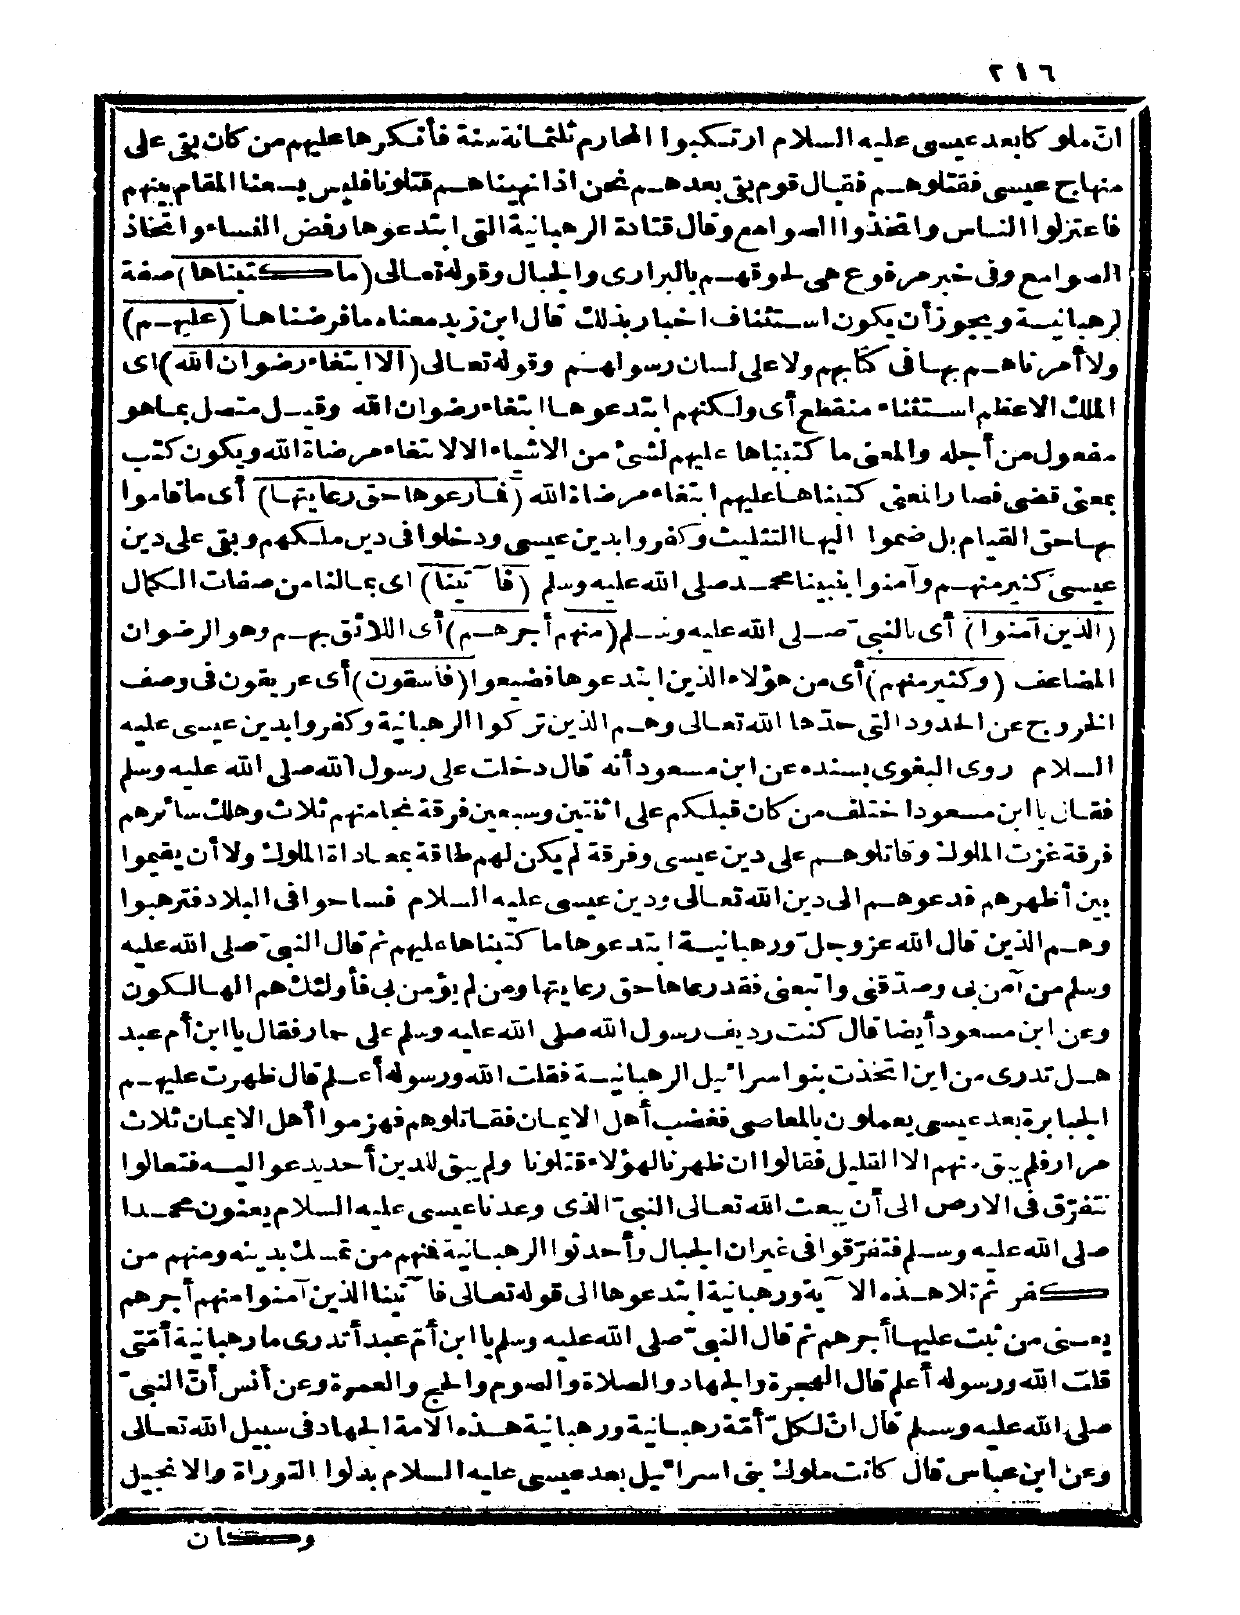 ٢١٦
انّ ملوكا بعد عيسى عليه السلام ارتكبوا المحارم ثلثمائة سنة فأنكرها عليهم من كان بقى على
منهاج عيسى فقتلوهم فقال قوم بقى بعدهم نحن اذا نهيناهم قتلونا فليس يسعنا المقام بينهم
فاعتزلوا الناس واتخذوا الصوامع وقال قتادة الرهبانية التى ابتدعوها رفض النساء واتخاذ
الصوامع وفى خبر مرفوع هى لحوقهم بالبرارى والجبال وقوله تعالى (ما كتبناها) صفة
لرهبانية ويجوز أن يكون استئناف اخبار بذلك قال ابن زيد معناه ما فرضناها (عليهم)
ولا أمرناهم بها فى كتابهم ولا على لسان رسولهم وقوله تعالى (الا ابتغاء رضوان الله) اى
الملك الاعظم استثناء منقطع أى ولكنهم ابتدعوها ابتغاء رضوان الله وقيل متصل بما هو
مفعول من أجله والمعنى ما كتبناها عليهم لشئ من الاشياء الا لابتغاء مرضاة الله ويكون كتب
بمعنى قضى فصار المعنى كتبناها عليهم ابتغاء مرضاة الله (فما رعوها حق رعايتها) أى ما قاموا
بها حق القيام بل ضموا اليها التثليث وكفروا بدين عيسى ودخلوا فى دين ملكهم وبقى على دين
عيسى كثير منهم وآمنوا بنبينا محمد صلى الله عليه وسلم (فآتينا) اى بمالنا من صفات الكمال
(الذين آمنوا) أى بالنبىّ صلى الله عليه وسلم (منهم أجرهم) أى اللائق بهم وهو الرضوان
المضاعف (وكثير منهم) أى من هؤلاء الذين ابتدعوها فضيعوا (فاسقون) أى عريقون فى وصف
الخروج عن الحدود التى حدّها الله تعالى وهم الذين تركوا الرهبانية وكفروا بدين عيسى عليه
السلام روى البغوى بسنده عن ابن مسعود أنه قال دخلت على رسول الله صلى الله عليه وسلم
فقال يا ابن مسعود اختلف من كان قبلكم على اثنتين وسبعين فرقة نجا منهم ثلاث وهلك سائرهم
فرقة غزت الملوك وقاتلوهم على دين عيسى وفرقة لم يكن لهم طاقة بمعاداة الملوك ولا أن يقيموا
بين أظهرهم فدعوهم الى دين الله تعالى ودين عيسى عليه السلام فساحوا فى البلاد فترهبوا
وهم الذين قال الله عز وجلّ ورهبانية ابتدعوها ما كتبناها عليهم ثم قال النبىّ صلى الله عليه
وسلم من آمن بى وصدّقنى واتبعنى فقد رعاها حق رعايتها ومن لم يؤمن بى فأولئك هم الهالكون
وعن ابن مسعود أيضا قال كنت رديف رسول الله صلى الله عليه وسلم على حمار فقال يا ابن أم عبد
هل تدرى من اين اتخذت بنو اسرائيل الرهبانية فقلت الله ورسوله أعلم قال ظهرت عليهم
الجبابرة بعد عيسى يعملون بالمعاصى فغضب أهل الايمان فقاتلوهم فهزموا أهل الايمان ثلاث
مرار فلم يبق منهم الا القليل فقالوا ان ظهرنا لهؤلاء قتلونا ولم يبق للدين أحد يدعو اليه فتعالوا
نتفرّق فى الارض الى أن يبعث الله تعالى النبىّ الذى وعدنا عيسى عليه السلام يعنون محمدا
صلى الله عليه وسلم فتفرّقوا فى غيران الجبال وأحدثوا الرهبانية فمنهم من تمسك بدينه ومنهم من
كفر ثم تلا هذه الآية ورهبانية ابتدعوها الى قوله تعالى فآتينا الذين آمنوا منهم أجرهم
يعنى من ثبت عليها أجرهم ثم قال النبىّ صلى الله عليه وسلم يا ابن أمّ عبد أتدرى ما رهبانية أمّتى
قلت الله ورسوله أعلم قال الهجرة والجهاد والصلاة والصوم والحج والعمرة وعن أنس أنّ النبىّ
صلى الله عليه وسلم قال انّ لكلّ أمّة رهبانية ورهبانية هذه الامة الجهاد فى سبيل الله تعالى
وعن ابن عباس قال كانت ملوك بنى اسرائيل بعد عيسى عليه السلام بدلوا التوراة والانجيل
وكان